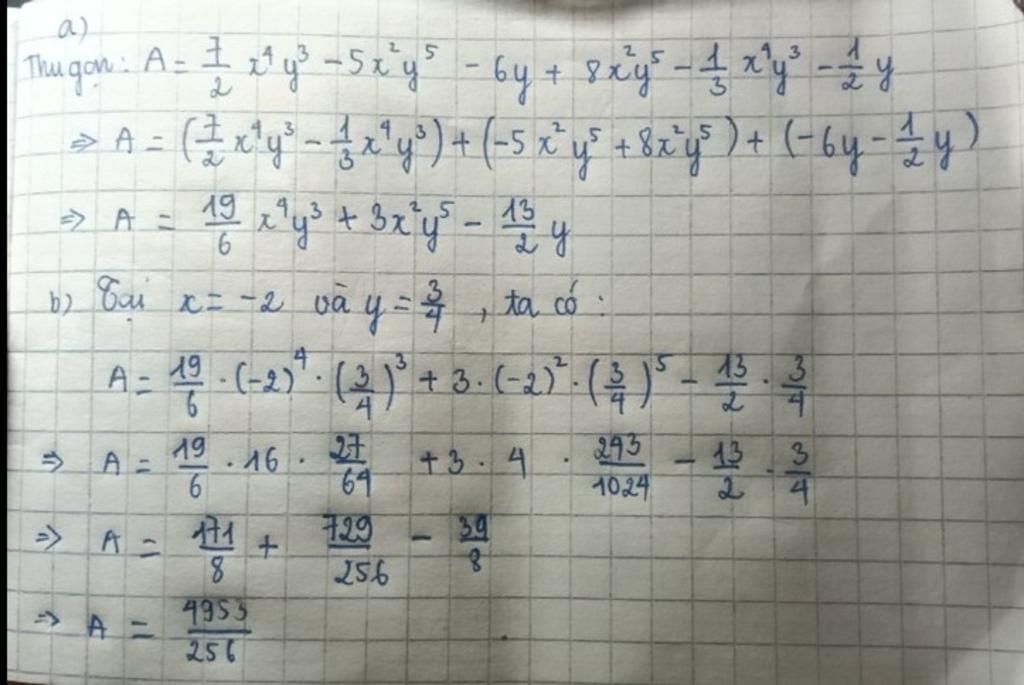 a)
Thu gọn: A = 7/2 x⁴y³ - 5x²y⁵ - 6y + 8x²y⁵ - 1/3 x⁴y³ - 1/2 y
⇒ A = (7/2 x⁴y³ - 1/3 x⁴y³) + (-5x²y⁵ + 8x²y⁵) + (-6y - 1/2 y)
⇒ A = 19/6 x⁴y³ + 3x²y⁵ - 13/2 y
b) Tại x = -2 và y = 3/4, ta có:
A = 19/6 · (-2)⁴ · (3/4)³ + 3 · (-2)² · (3/4)⁵ - 13/2 · 3/4
⇒ A = 19/6 · 16 · 27/64 + 3 · 4 · 243/1024 - 13/2 · 3/4
⇒ A = 171/8 + 729/256 - 39/8
⇒ A = 4953/256